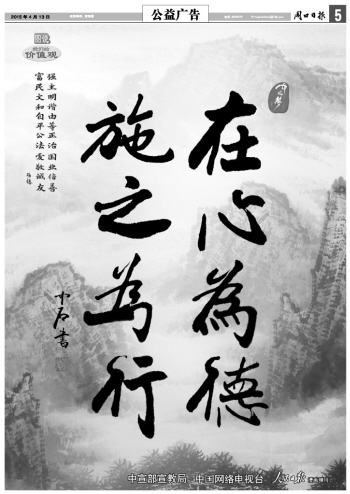 2015年4月13日
公益广告
周口日报
5
图说
我们的
价值观
中国梦
在心為德
施之為行
富强民主文明和谐自由平等公正法治爱国敬业诚信友善
中石書
中宣部宣教局 中国网络电视台 人民日报